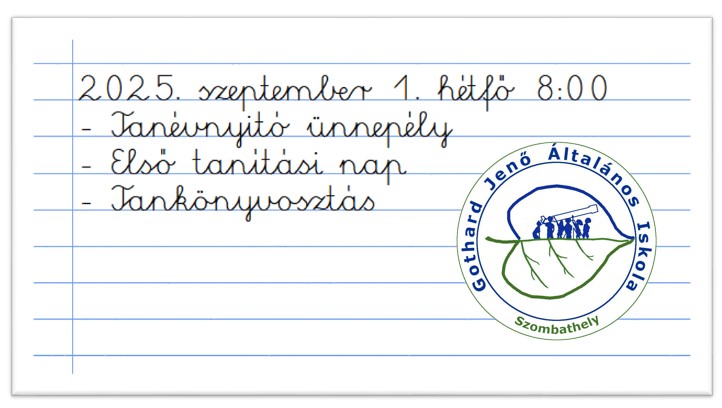 2025. szeptember 1. hétfő 8:00
- Tanévnyitó ünnepély
- Első tanítási nap
- Tankönyvosztás
Gothard Jenő Általános Iskola
Szombathely